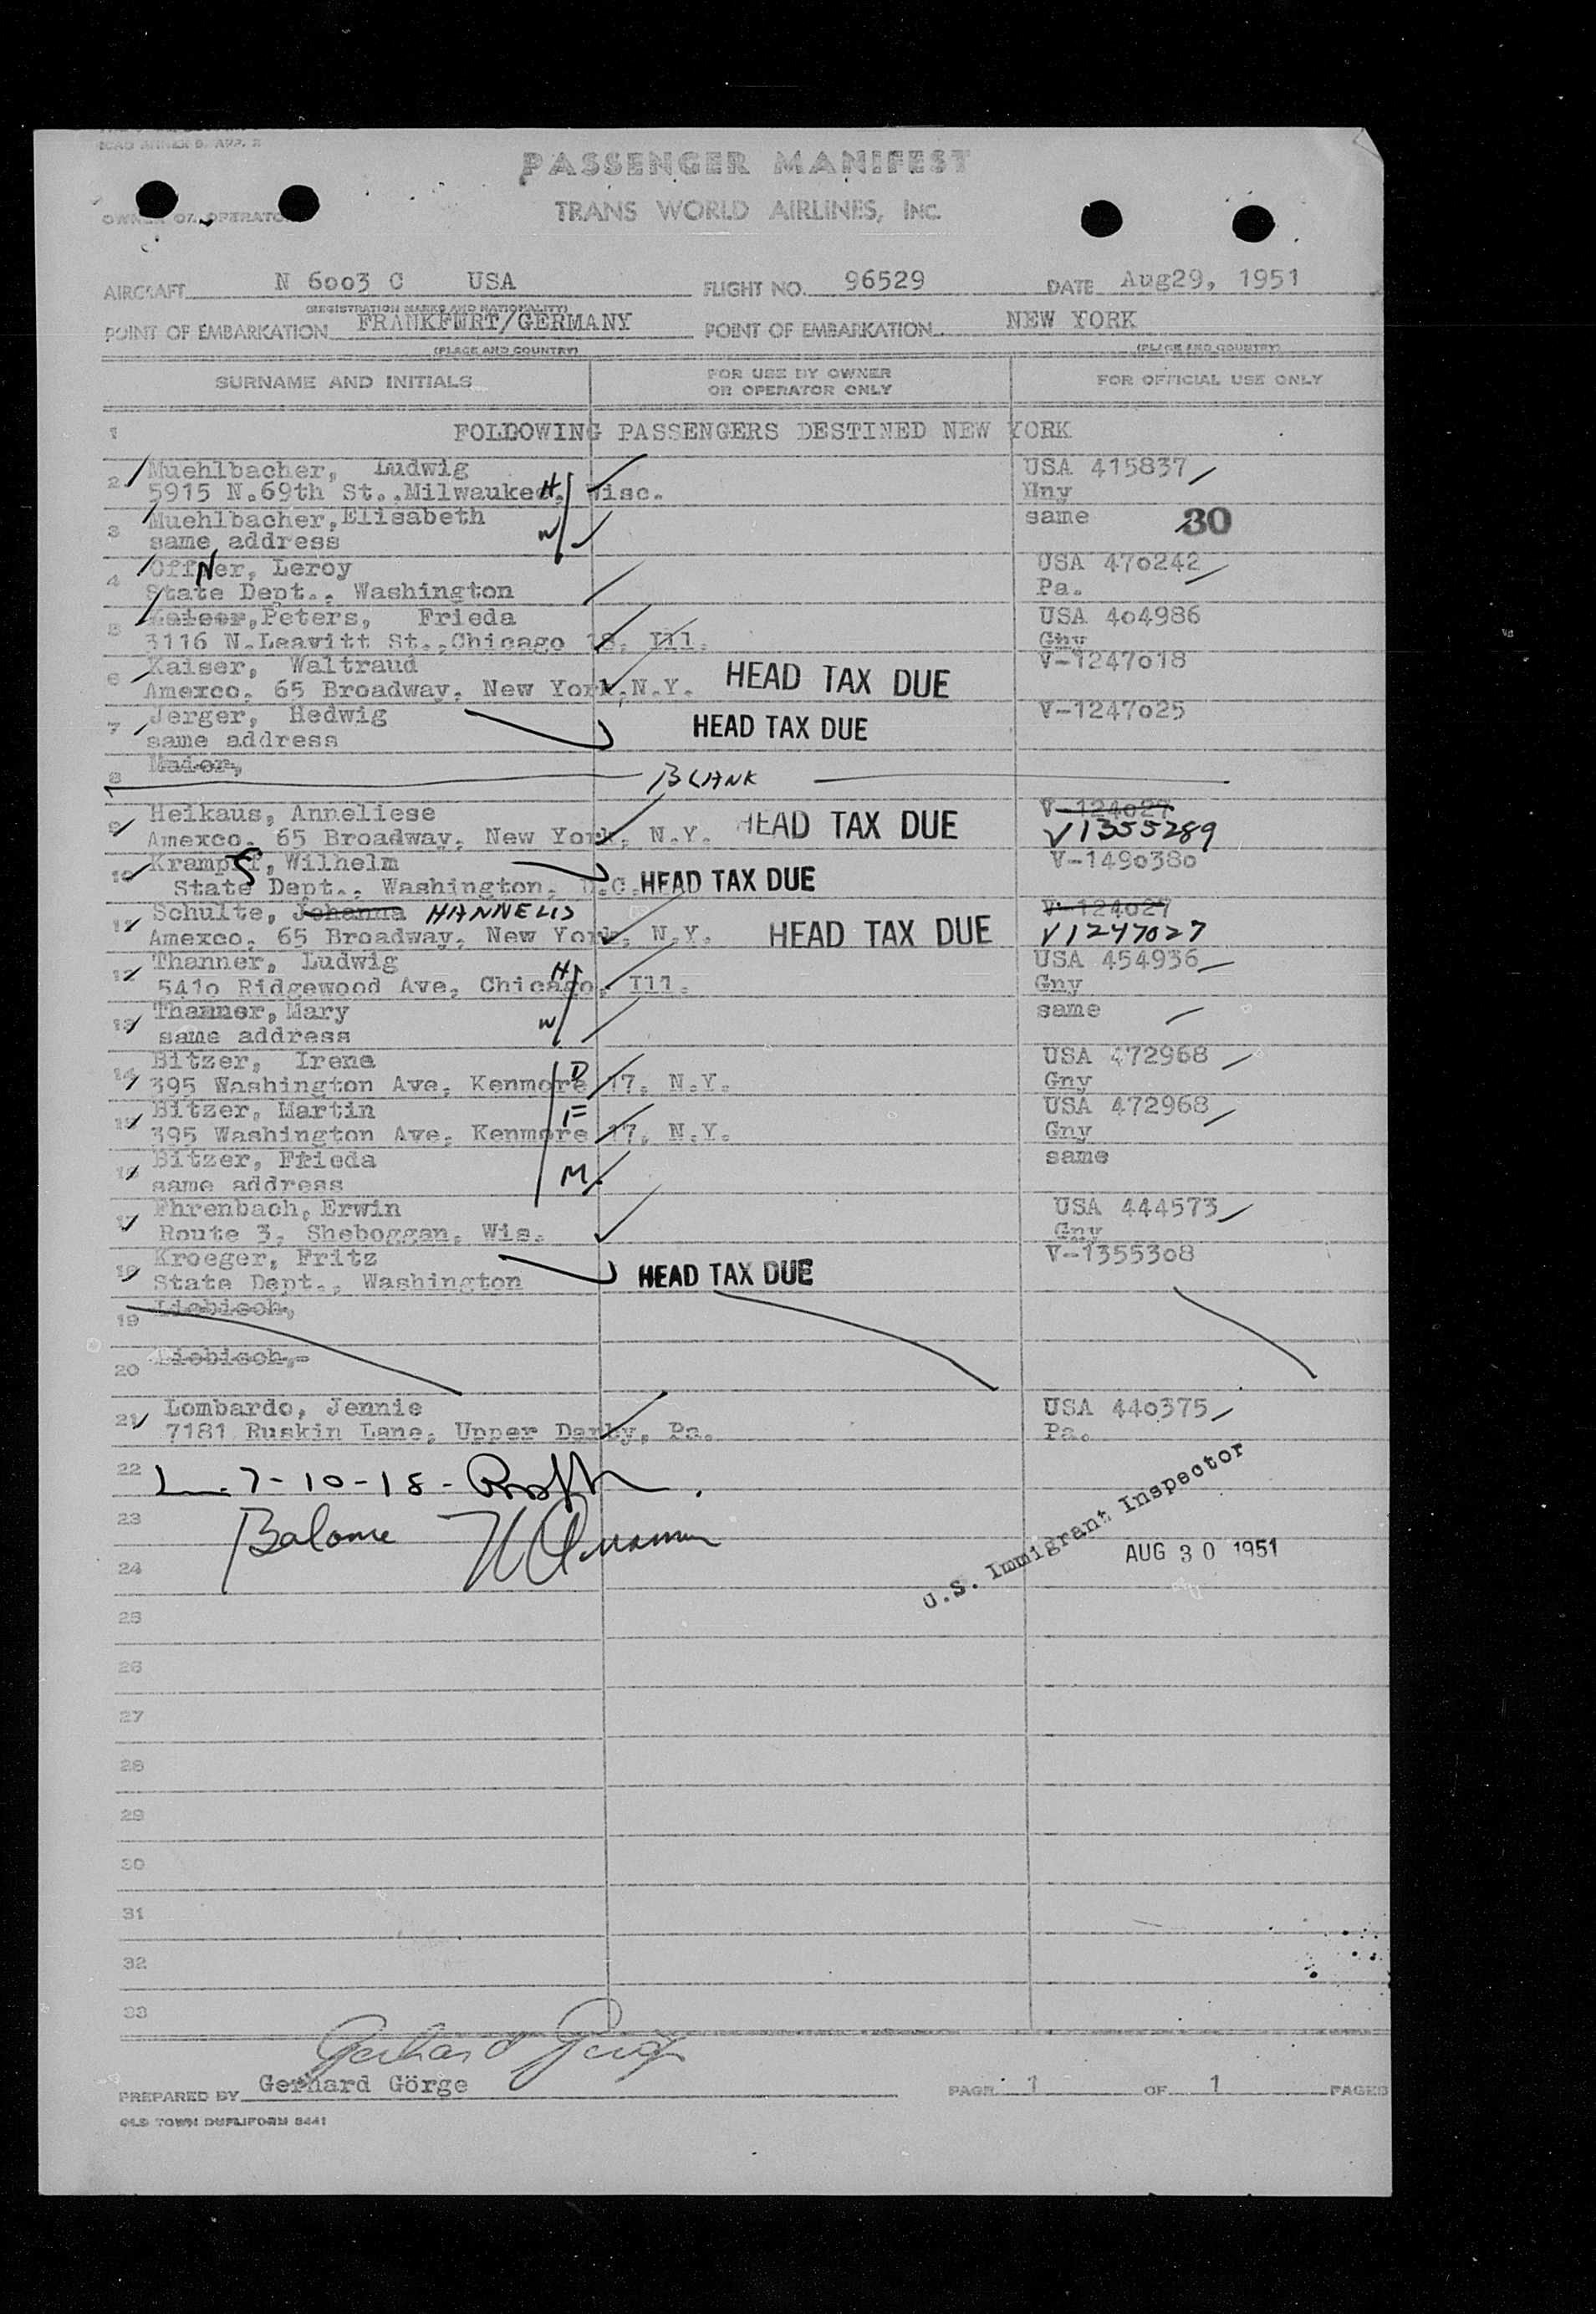 ICAO ANNEX 9, APP. 2
PASSENGER MANIFEST
OWNER OR OPERATOR
TRANS WORLD AIRLINES, INC.
AIRCRAFT N 6003 C USA FLIGHT NO. 96529 DATE Aug29, 1951
(REGISTRATION MARKS AND NATIONALITY)
POINT OF EMBARKATION FRANKFURT/GERMANY POINT OF EMBARKATION NEW YORK
(PLACE AND COUNTRY) (PLACE AND COUNTRY)
SURNAME AND INITIALS FOR USE BY OWNER OR OPERATOR ONLY FOR OFFICIAL USE ONLY
1 FOLLOWING PASSENGERS DESTINED NEW YORK
2 Muehlbacher, Ludwig USA 415837
5915 N.69th St.,Milwaukee, Wisc. H Hny
3 Muehlbacher,Elisabeth same 30
same address W
4 OffNer, Leroy USA 470242
State Dept., Washington Pa.
5 Kaiser,Peters, Frieda USA 404986
3116 N.Leavitt St.,Chicago 18, Ill. Gny
6 Kaiser, Waltraud V-1247018
Amexco, 65 Broadway, New York,N.Y. HEAD TAX DUE
7 Jerger, Hedwig V-1247025
same address HEAD TAX DUE
8 Mader,
BLANK
9 Heikaus, Anneliese V-124027
Amexco, 65 Broadway, New York, N.Y. HEAD TAX DUE V1355289
10 Krampff, Wilhelm V-1490380
State Dept., Washington, D.C. HEAD TAX DUE
11 Schulte, Johanna HANNELIS V-124027
Amexco, 65 Broadway, New York, N.Y. HEAD TAX DUE V1247027
12 Thanner, Ludwig USA 454936
5410 Ridgewood Ave, Chicago, Ill. H Gny
13 Thanner, Mary same
same address W
14 Bitzer, Irene USA 472968
395 Washington Ave, Kenmore 17, N.Y. D Gny
15 Bitzer, Martin USA 472968
395 Washington Ave, Kenmore 17, N.Y. F Gny
16 Bitzer, Frieda same
same address M
17 Fhrenbach, Erwin USA 444573
Route 3, Sheboggan, Wis. Gny
18 Kroeger, Fritz V-1355308
State Dept., Washington HEAD TAX DUE
19 Liebisch,
20 Liebisch,-
21 Lombardo, Jennie USA 440375
7181 Ruskin Lane, Upper Darby, Pa. Pa.
22 L. 7-10-18-
23 Balome
U.S. Immigrant Inspector
24 AUG 30 1951
25
26
27
28
29
30
31
32
33
Gerhard Görge
PREPARED BY Gerhard Görge PAGE 1 OF 1 PAGES
OLD TOWN DUPLIFORM 8441